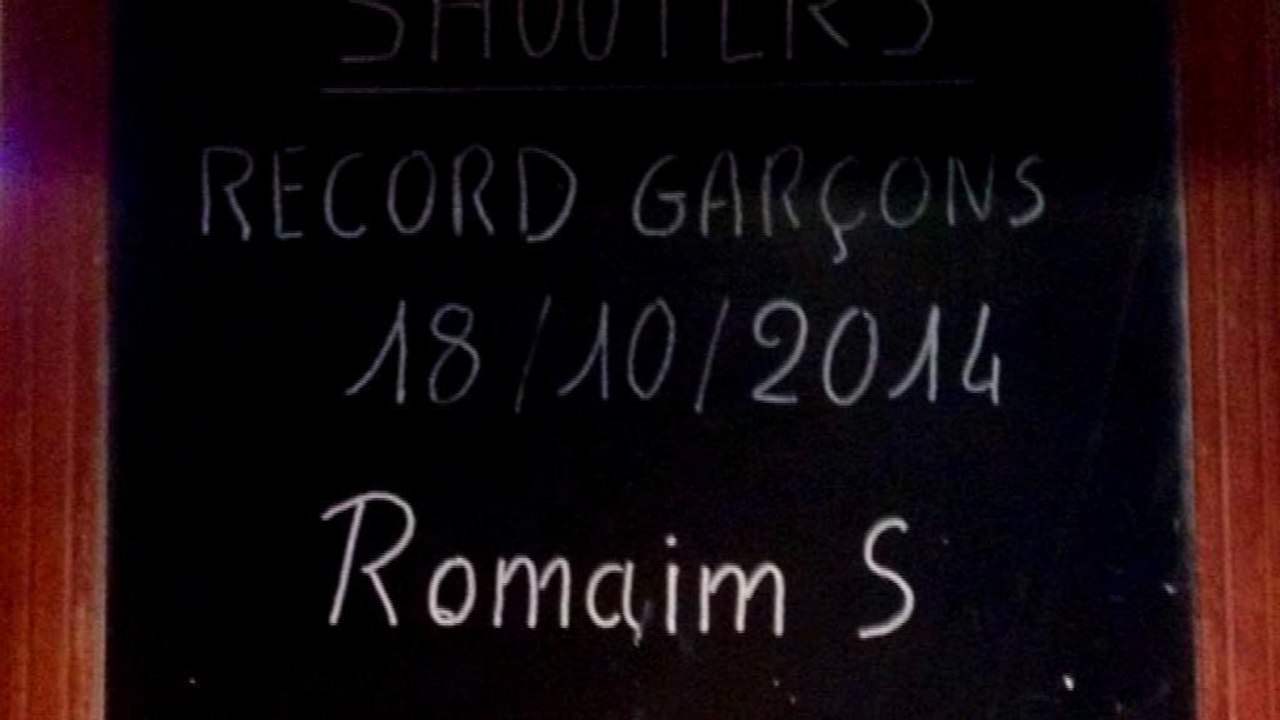 SHOOTERS
RECORD GARÇONS
18/10/2014
Romaim S